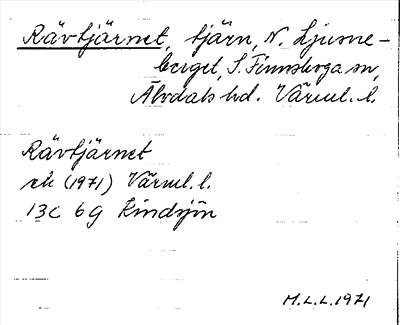 Rävtjärnet, tjärn, N. Ljusne-
berget, S. Finnskoga sn,
Älvdals hd. Värml. l.
Rävtjärnet
ek (1971) Värml. l.
13C 6g Kindsjön
M.L.L. 1971